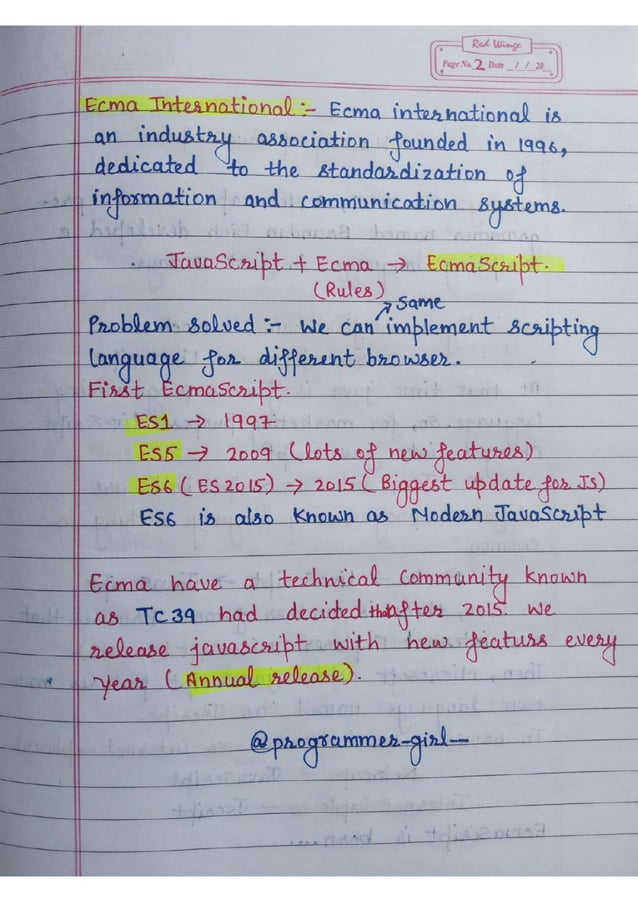 Red Winge
Page No. 2 Date _/_/_20_
Ecma International :- Ecma international is
an industry association founded in 1996,
dedicated to the standardization of
information and communication systems.
JavaScript + Ecma → EcmaScript.
(Rules)
Same
Problem solved :- We can implement scripting
language for different browser.
First EcmaScript.
ES1 → 1997
ES5 → 2009 (lots of new features)
ES6 (ES2015) → 2015 (Biggest update for Js)
ES6 is also known as Modern JavaScript
Ecma have a technical community known
as TC39 had decided that after 2015 we
release javascript with new featurs every
year (Annual release).
@programmer-girl--